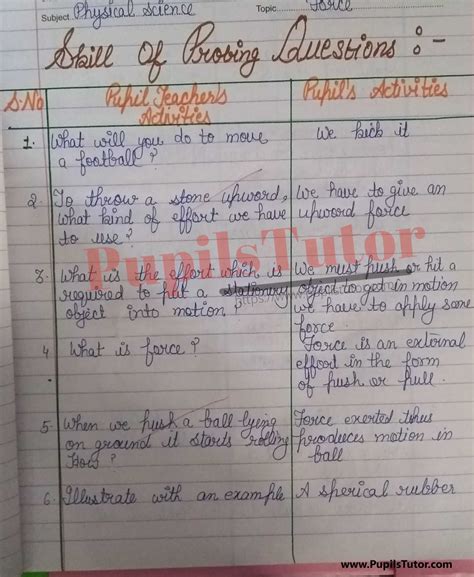 Subject Physical Science Topic Force
Skill Of Probing Questions :-
S.No Pupil Teacher's Activities Pupil's Activities
1. What will you do to move We kick it
a football?
2. To throw a stone upword, We have to give an
what kind of effort we have upword force
to use?
PupilsTutor
3. What is the effort which is We must push or hit a
required to put a stationery object to ged in motion
object into motion? we have to apply some
force
4 What is force? Force is an external
efford in the form
of push or pull.
5. When we push a ball lying Force exerted thus
on ground it starts rolling produces motion in
How? ball
6. Illustrate with an example A sperical rubber
www.PupilsTutor.com